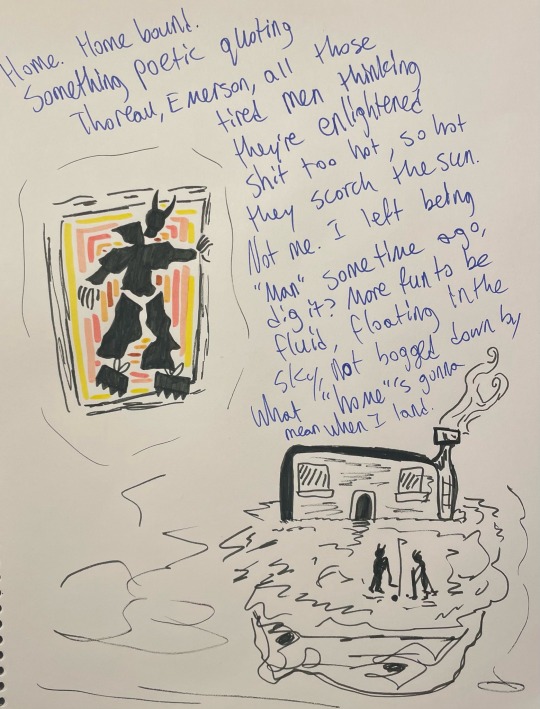 Home. Home bound.
Something poetic quoting
Thoreau, Emerson, all those
tired men thinking
they're enlightened
shit too hot, so hot
they scorch the sun.
Not me. I left being
"man" sometime ago,
dig it? More fun to be
fluid, floating in the
sky, not bogged down by
what "home"'s gonna
mean when I land.